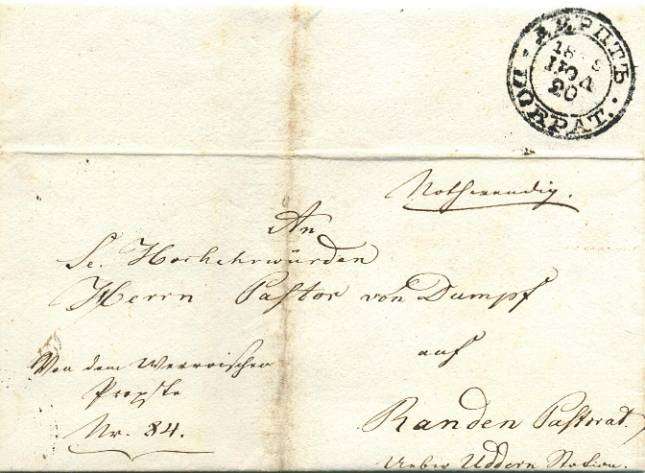 ДЕРПТЪ
НОЯ
20
DORPAT.
Nothwendig.
An
Se. Hochehrwürden
Herrn Pastor von Dumpf
auf
Randen Pastorat.
Ueber Uddern Station.
Von dem Werroischen
Propste
Nr. 84.